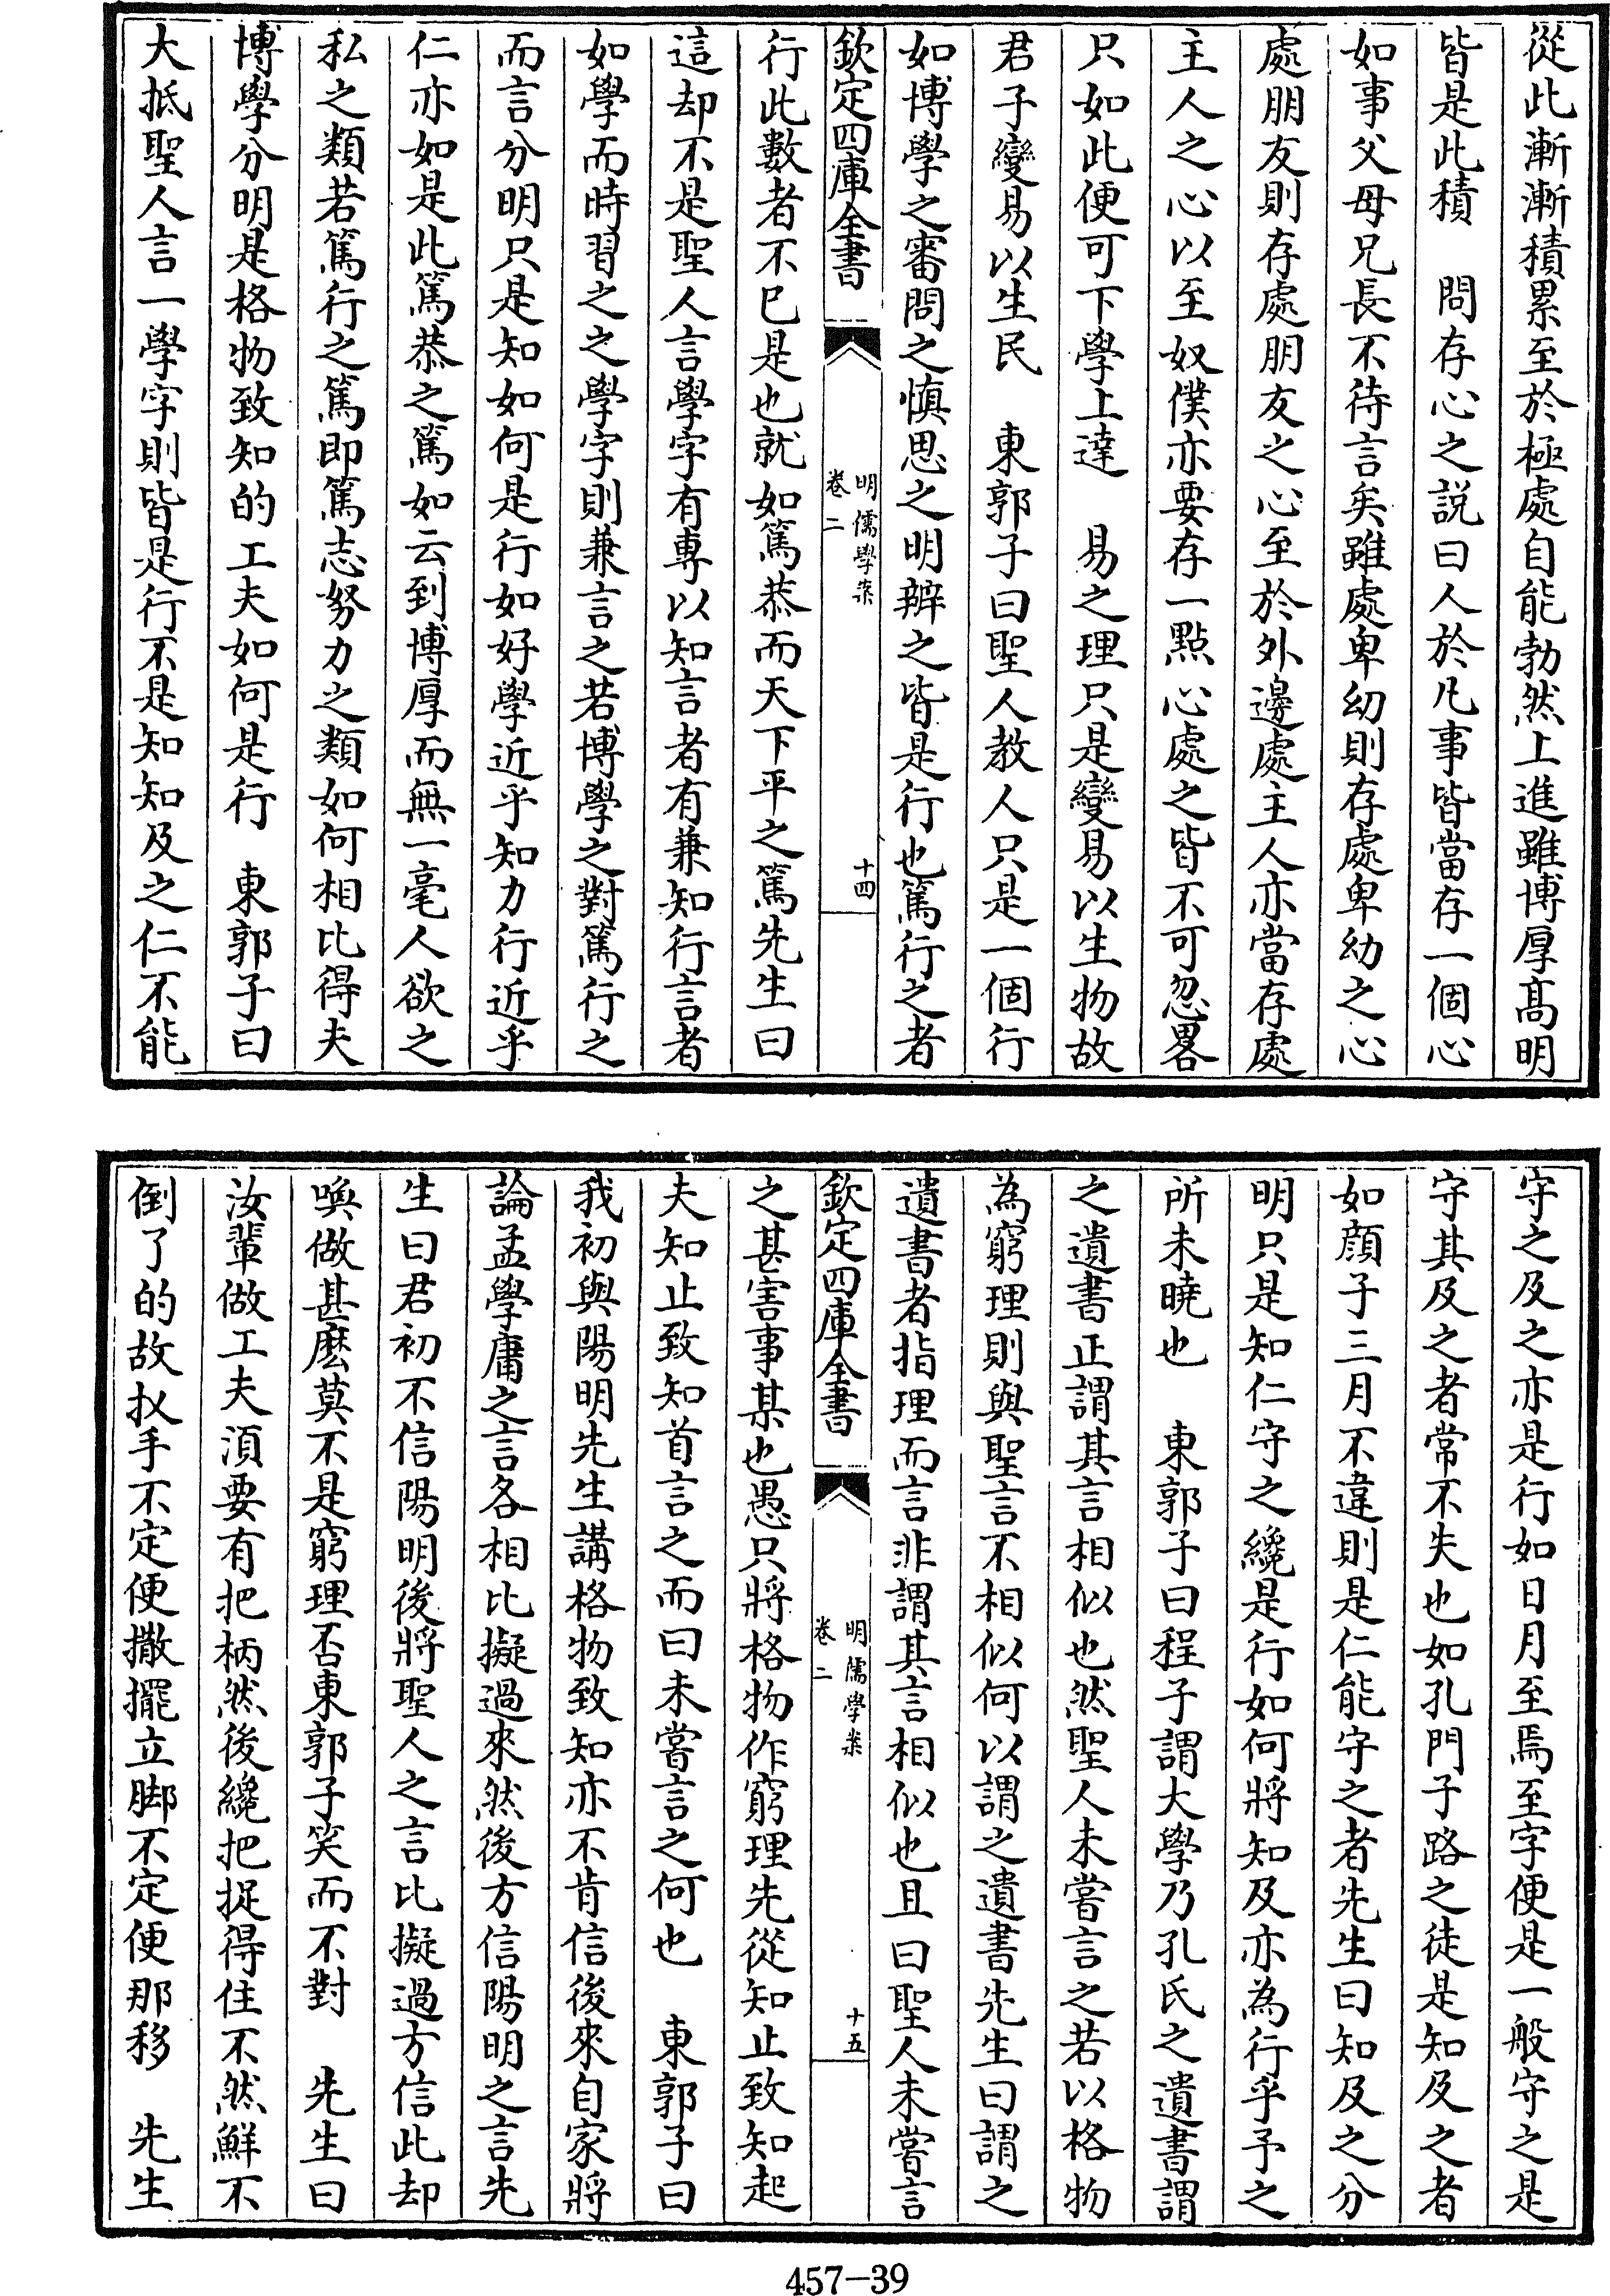 從此漸漸積累至於極處自能勃然上進雖博厚髙明
皆是此積　問存心之説曰人於凡事皆當存一個心
如事父母兄長不待言矣雖處卑幼則存處卑幼之心
處朋友則存處朋友之心至於外邊處主人亦當存處
主人之心以至奴僕亦要存一點心處之皆不可忽畧
只如此便可下學上達　易之理只是變易以生物故
君子變易以生民　東郭子曰聖人教人只是一個行
如博學之審問之慎思之明辨之皆是行也篤行之者
欽定四庫全書
明儒學案
卷二
十四
行此數者不已是也就如篤恭而天下平之篤先生曰
這却不是聖人言學字有專以知言者有兼知行言者
如學而時習之之學字則兼言之若博學之對篤行之
而言分明只是知如何是行如好學近乎知力行近乎
仁亦如是此篤恭之篤如云到博厚而無一毫人欲之
私之類若篤行之篤即篤志努力之類如何相比得夫
博學分明是格物致知的工夫如何是行　東郭子曰
大抵聖人言一學字則皆是行不是知知及之仁不能
守之及之亦是行如日月至焉至字便是一般守之是
守其及之者常不失也如孔門子路之徒是知及之者
如顔子三月不違則是仁能守之者先生曰知及之分
明只是知仁守之纔是行如何將知及亦為行乎予之
所未曉也　東郭子曰程子謂大學乃孔氏之遺書謂
之遺書正謂其言相似也然聖人未嘗言之若以格物
為窮理則與聖言不相似何以謂之遺書先生曰謂之
遺書者指理而言非謂其言相似也且曰聖人未嘗言
欽定四庫全書
明儒學案
卷二
十五
之甚害事某也愚只將格物作窮理先從知止致知起
夫知止致知首言之而曰未嘗言之何也　東郭子曰
我初與陽明先生講格物致知亦不肯信後來自家將
論孟學庸之言各相比擬過來然後方信陽明之言先
生曰君初不信陽明後將聖人之言比擬過方信此却
喚做甚麽莫不是窮理否東郭子笑而不對　先生曰
汝輩做工夫湏要有把柄然後纔把捉得住不然鮮不
倒了的故扠手不定便撒擺立脚不定便那移　先生
457-39